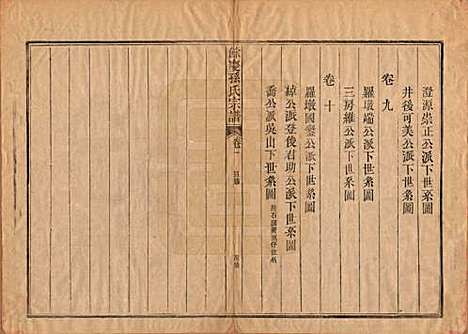 澄源崇正公派下世系圖
井後可美公派下世系圖
卷九
羅墩端公派下世系圖
三房維公派下世系圖
卷十
羅墩國鑒公派下世系圖
綽公派登俊君助公派下世系圖
喬公派吳山下世系圖
餘慶孫氏宗譜
卷一
目錄